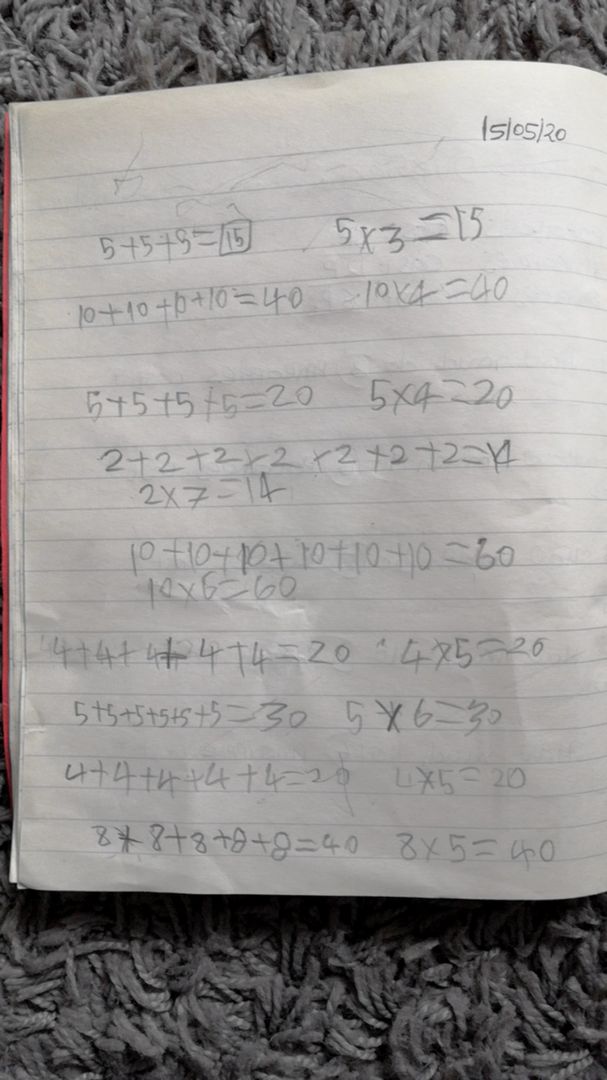 15/05/20
5+5+5=15 5×3=15
10+10+10+10=40 10×4=40
5+5+5+5=20 5×4=20
2+2+2+2+2+2+2=14
2×7=14
10+10+10+10+10+10=60
10×6=60
4+4+4+4+4=20 4×5=20
5+5+5+5+5+5=30 5×6=30
4+4+4+4+4=20 4×5=20
8+8+8+8+8=40 8×5=40